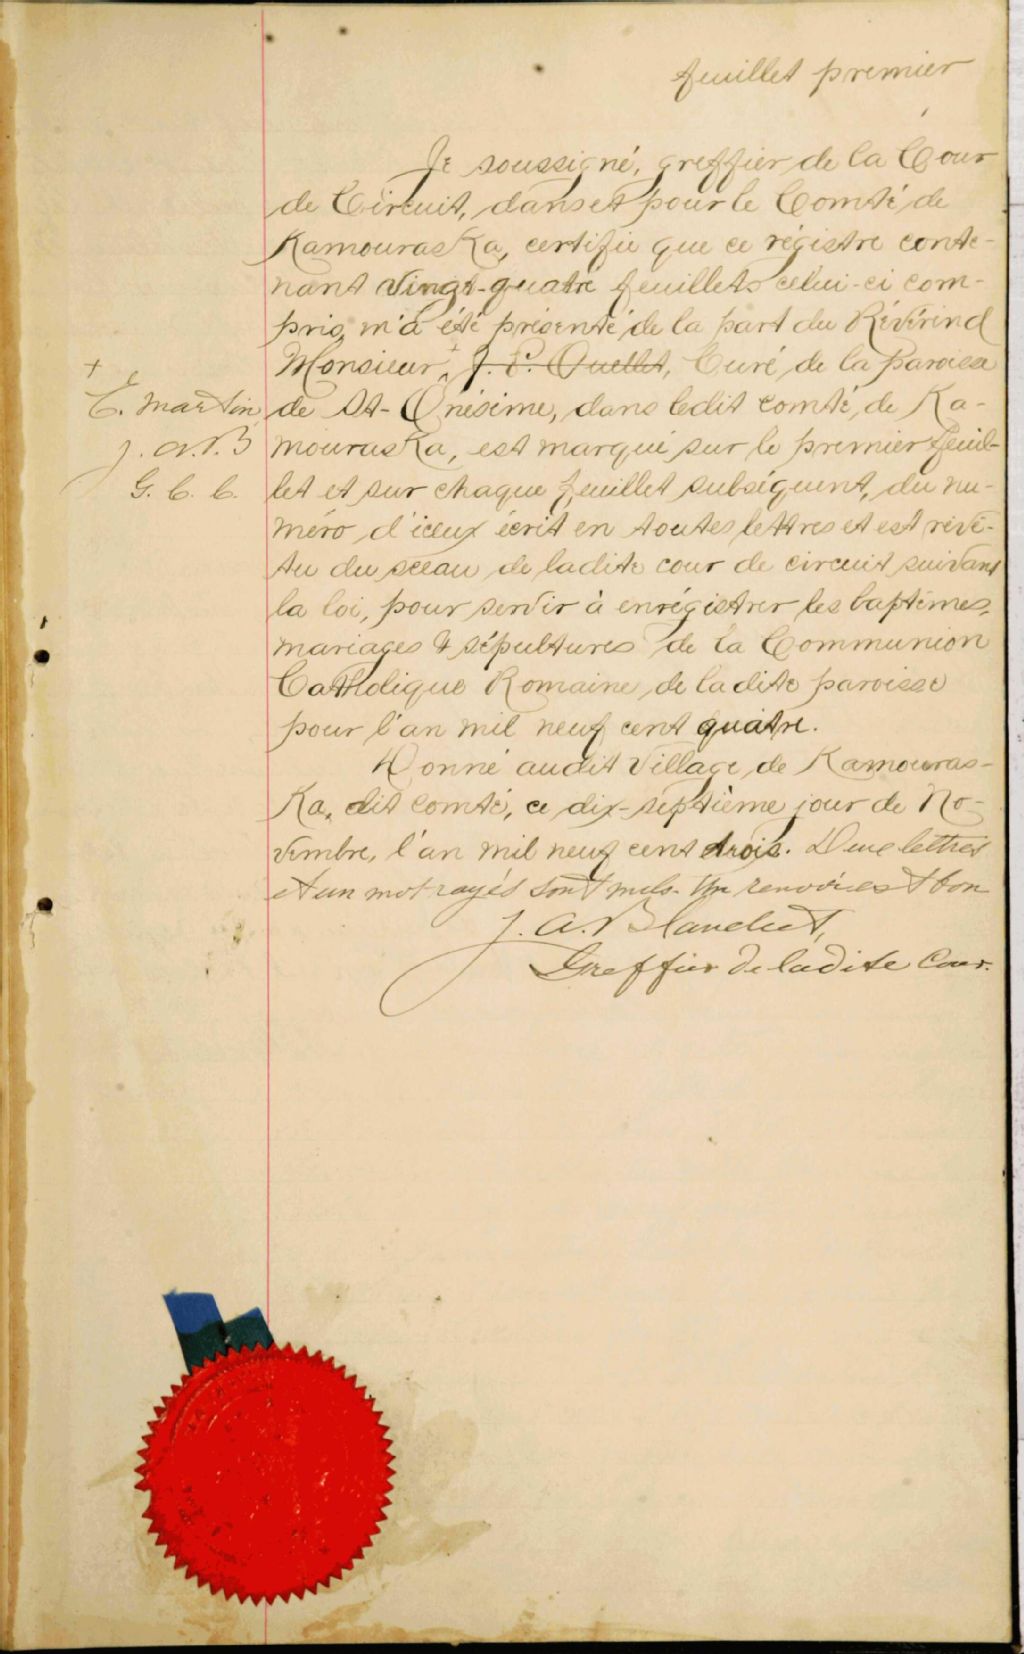 feuillet premier
Je soussigné, greffier de la Cour
de Circuit, dans et pour le Comté de
Kamouraska, certifie que ce régistre conte-
nant vingt-quatre feuillets celui-ci com-
pris, m'a été présenté de la part du Révérend
Monsieur + J. P. Ouellet, Curé de la paroisse
+
E. Martin
J. A. B
G. C. C.
de St-Onésime, dans ledit comté, de Ka-
mouraska, est marqué sur le premier feuil-
let et sur chaque feuillet subséquent, du nu-
méro d'iceux écrit en toutes lettres et est revê-
tu du sceau de ladite cour de circuit suivant
la loi, pour servir à enrégistrer les baptêmes,
mariages & sépultures de la Communion
Catholique Romaine, de ladite paroisse
pour l'an mil neuf cent quatre.
Donné audit Village de Kamouras-
Ka, dit comté, ce dix-septième jour de No-
vembre, l'an mil neuf cent trois. Deux lettres
et un mot rayés sont nuls. Un renvoi est bon
J. A. Blanchet,
Greffier de ladite Cour.